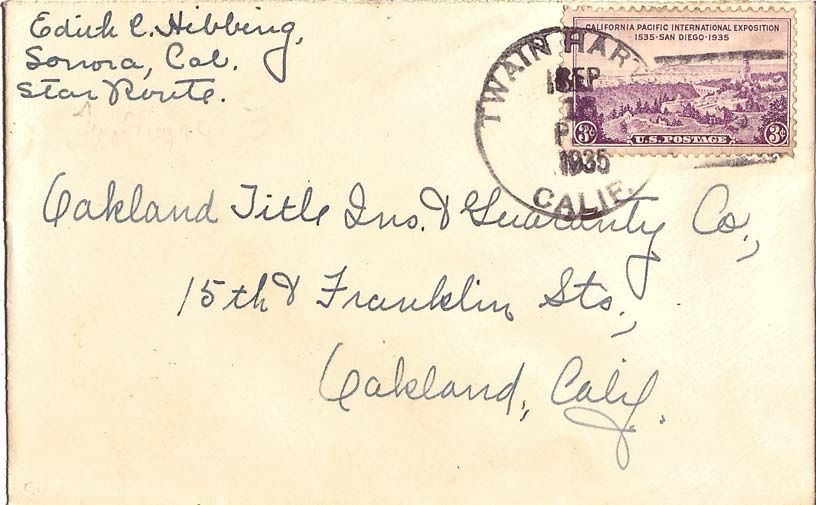 Edith C. Hibbing,
Sonora, Cal.
Star Route.
CALIFORNIA PACIFIC INTERNATIONAL EXPOSITION
1535-SAN DIEGO-1935
3¢ U.S. POSTAGE 3¢
TWAIN HAR
SEP
P
1935
CALIF.
Oakland Title Ins. & Guaranty Co.,
15th & Franklin Sts.,
Oakland, Calif.